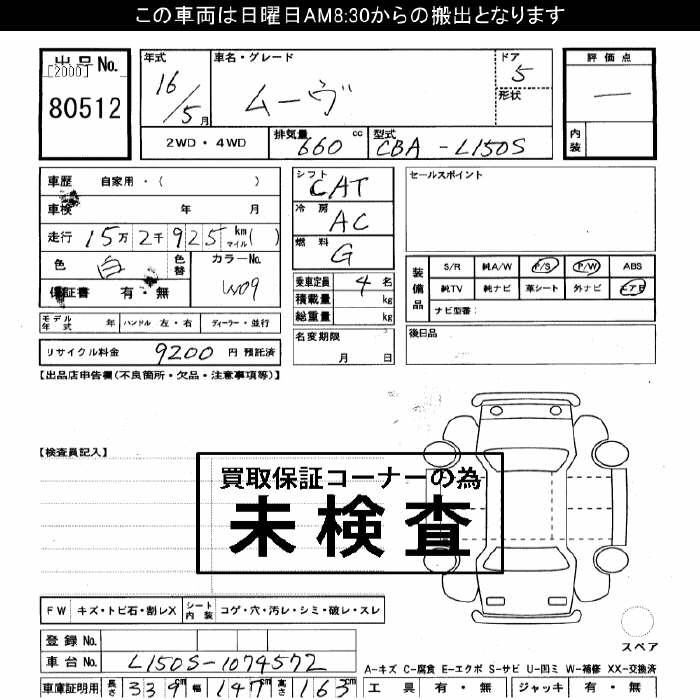 この車両は日曜日AM8:30からの搬出となります
出品No.
[2000]
80512
年式 車名・グレード ドア 評価点
16/5月 ムーヴ 5 ー
形状
内装
2WD・4WD 排気量 660cc 型式 CBA-L150S
車歴 自家用・( )
車検 年 月
走行 15万2千925km マイル( )
色 白 色替 カラーNo. W09
保証書 有・無
モデル年式 年 ハンドル 左・右 ディーラー・並行
リサイクル料金 9200円 預託済
シフト CAT
冷房 AC
燃料 G
乗車定員 4名
積載量 kg
総重量 kg
名変期限
月 日
セールスポイント
装備品
S/R 純A/W P/S P/W ABS
純TV 純ナビ 革シート 外ナビ エアB
ナビ型番:
後日品
【出品店申告欄(不良箇所・欠品・注意事項等)】
【検査員記入】
買取保証コーナーの為
未検査
FW キズ・トビ石・割レX シート内装 コゲ・穴・汚レ・シミ・破レ・スレ
登録No.
車台No. L150S-1074572
車庫証明用 長さ 339cm 幅 147cm 高さ 163cm
スペア
A-キズ C-腐食 E-エクボ S-サビ U-凹ミ W-補修 XX-交換済
工具 有・無 ジャッキ 有・無